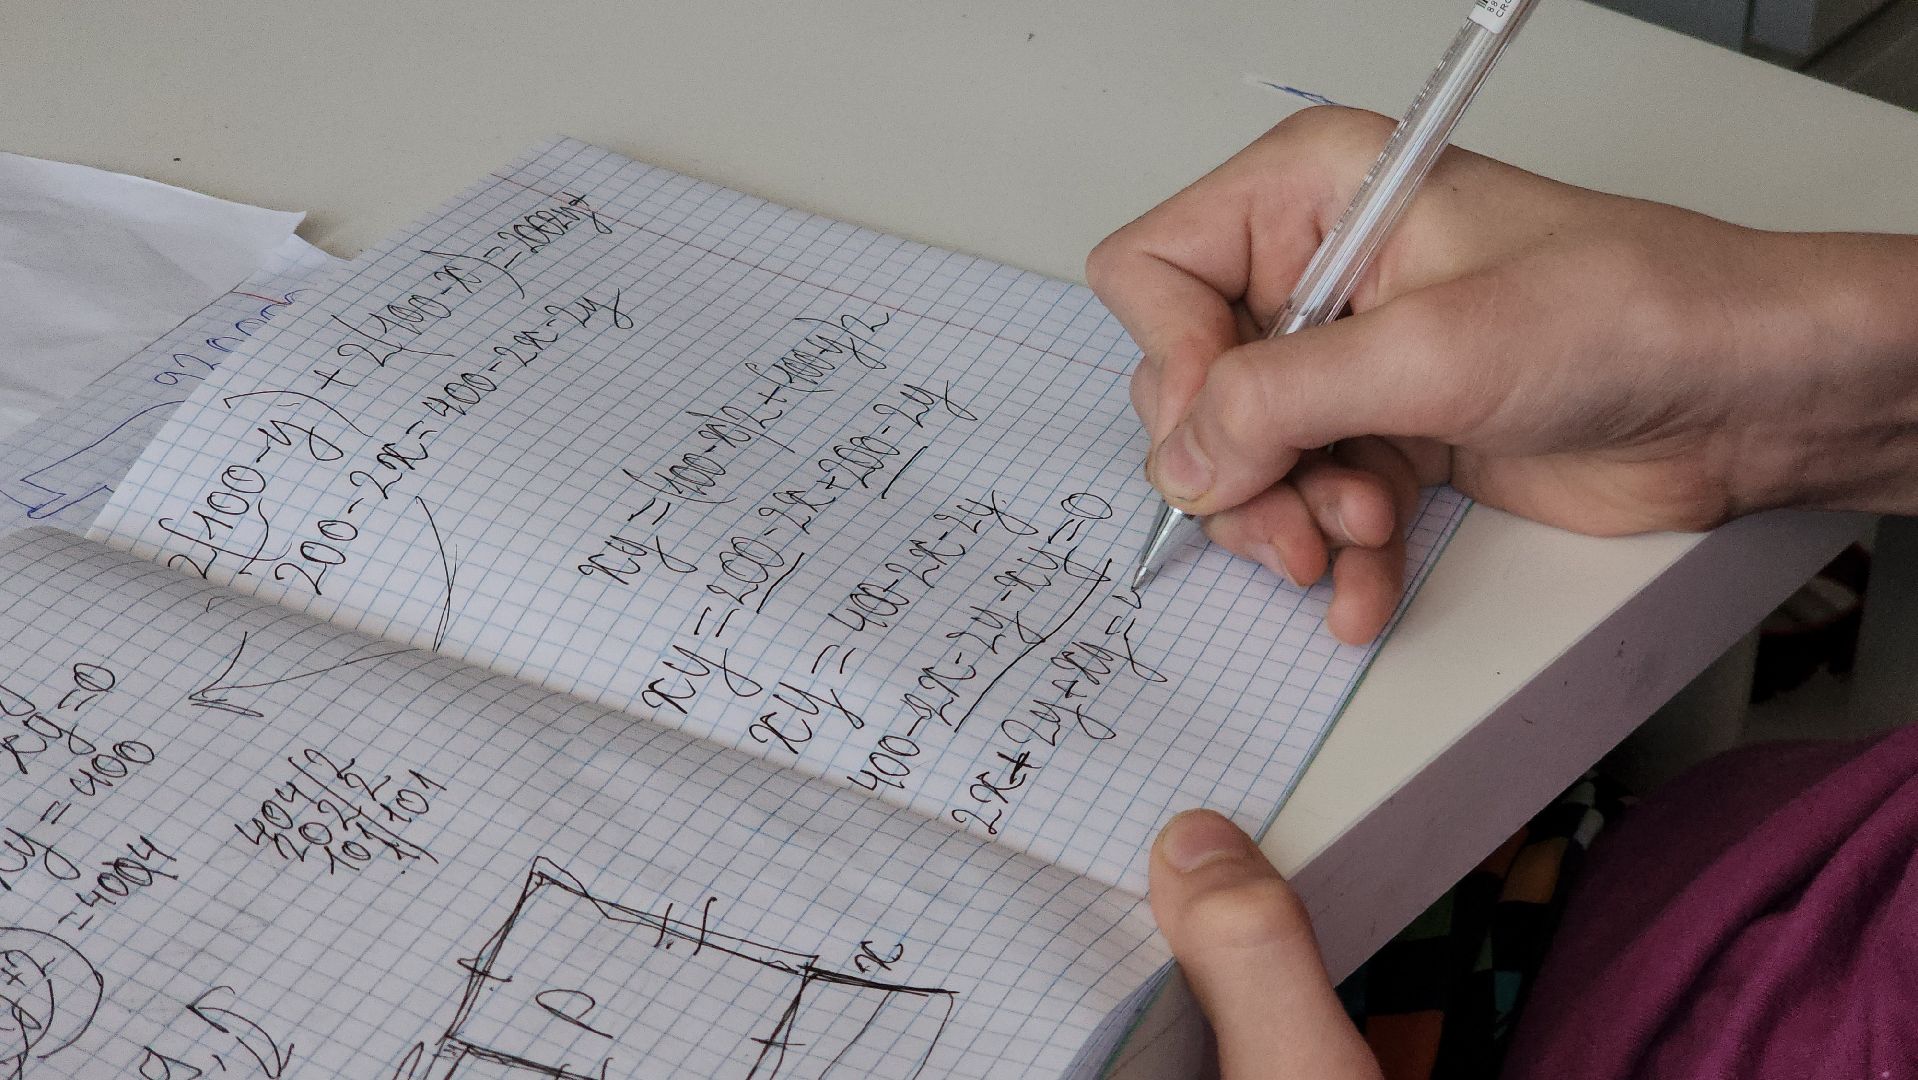 2(100-y)+2(100-x)=
200-2x=400-2x-2y
xy=(100-x)2+(100-y)2
xy=200-2x+200-2y
xy=400-2x-2y
400-2x-2y-xy=0
2x+2y+xy=
xy=0
xy=400
=4004
404/2
202/2
101/101
1/
x
p
y